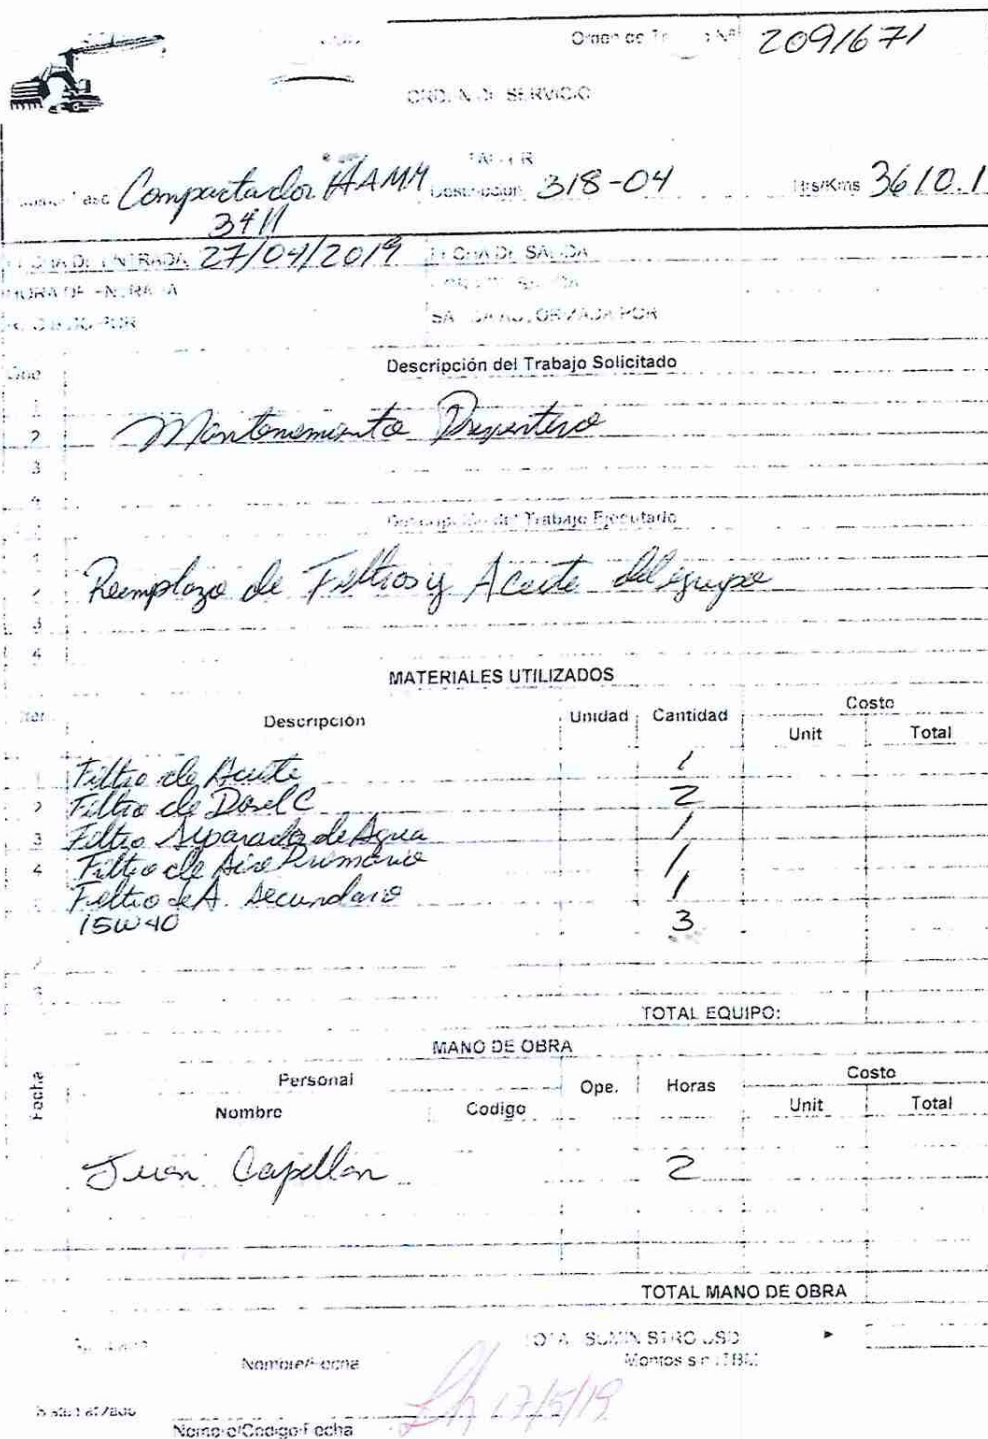 Orden de Nº 2091671
ORDEN DE SERVICIO
TALLER
Compactador HAMM Descripcion 318-04 Hrs/Kms 3610.1
3411
FECHA DE ENTRADA 27/04/2019 FECHA DE SALIDA
HORA DE ENTRADA
SALIDA AUTORIZADA POR
Descripción del Trabajo Solicitado
2 Mantenemiento Preventivo
3
4
Descripción del Trabajo Ejecutado
1
2 Reemplazo de Filtros y Aceite del equipo
3
4
MATERIALES UTILIZADOS
Item Descripción Unidad Cantidad Costo
Unit Total
1 Filtro de Aceite 1
2 Filtro de Dosel C 2
3 Filtro Separador de Agua 1
4 Filtro de Aire Primario 1
Filtro de A. Secundario 1
15W40 3
TOTAL EQUIPO:
MANO DE OBRA
Fecha Personal Ope. Horas Costo
Nombre Codigo Unit Total
Juan Capellan 2
TOTAL MANO DE OBRA
TOTAL SUMINISTRO USD
Nombre/Fecha Montos sin ITBM
17/5/19
Nombre/Codigo/Fecha